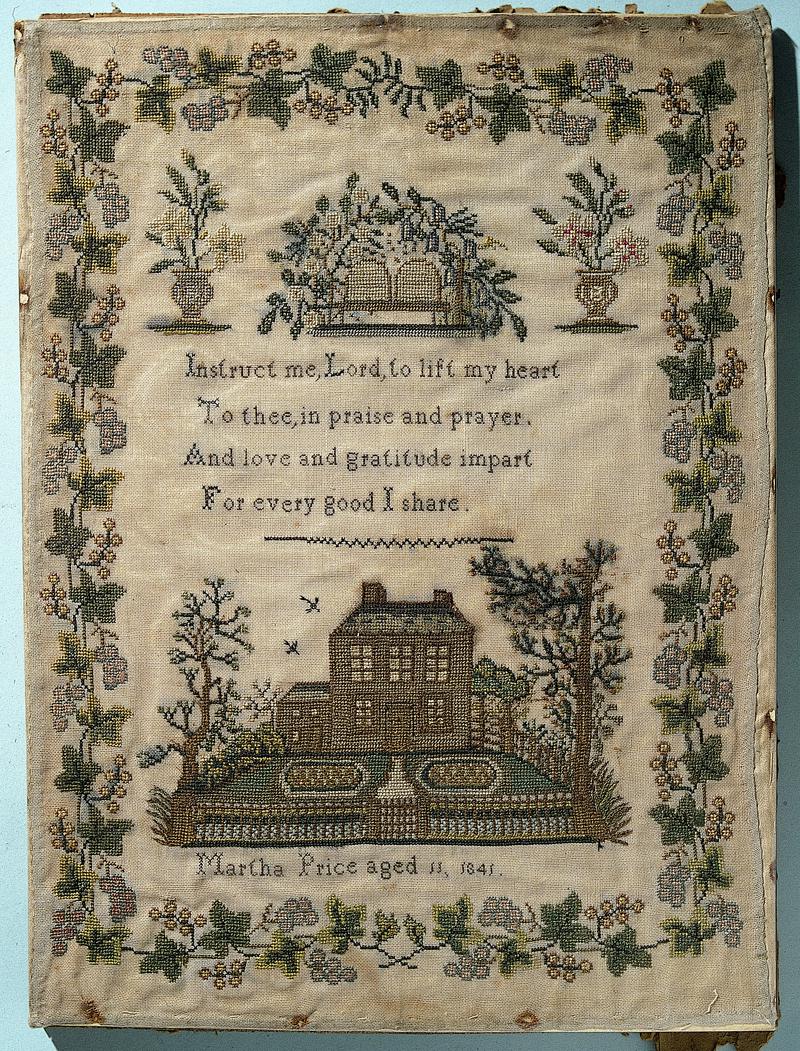 Instruct me, Lord, to lift my heart
To thee, in praise and prayer.
And love and gratitude impart
For every good I share.
Martha Price aged 11, 1841.